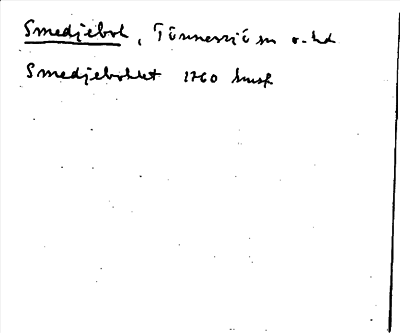 Smedjebol, Tönnersjö sn o. hd
Smedjebohlet 1760 hmsf